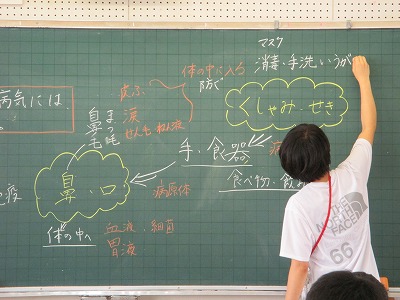 マスク
消毒・手洗いうが
体の中に入る
防ぐ
皮ふ
涙
せんもう ねん液
病気には
鼻毛
まつ毛
くしゃみ・せき
手・食器
病
食べ物・飲み
鼻・口
病原体
免疫
体の中へ
血液・細菌
胃液
THE
NORTH
FACE
66